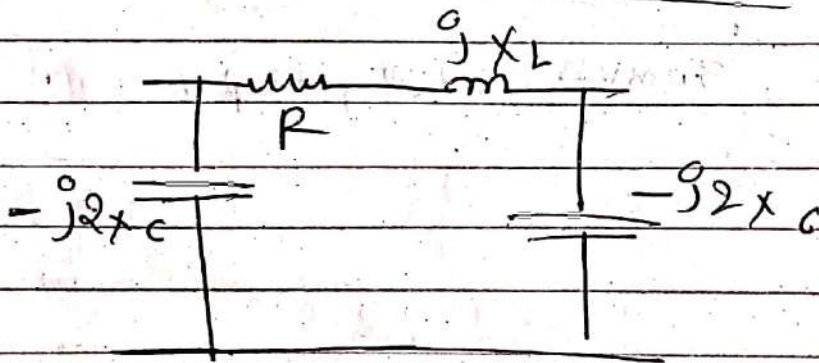 jXL
R
-j2xc
-j2xc